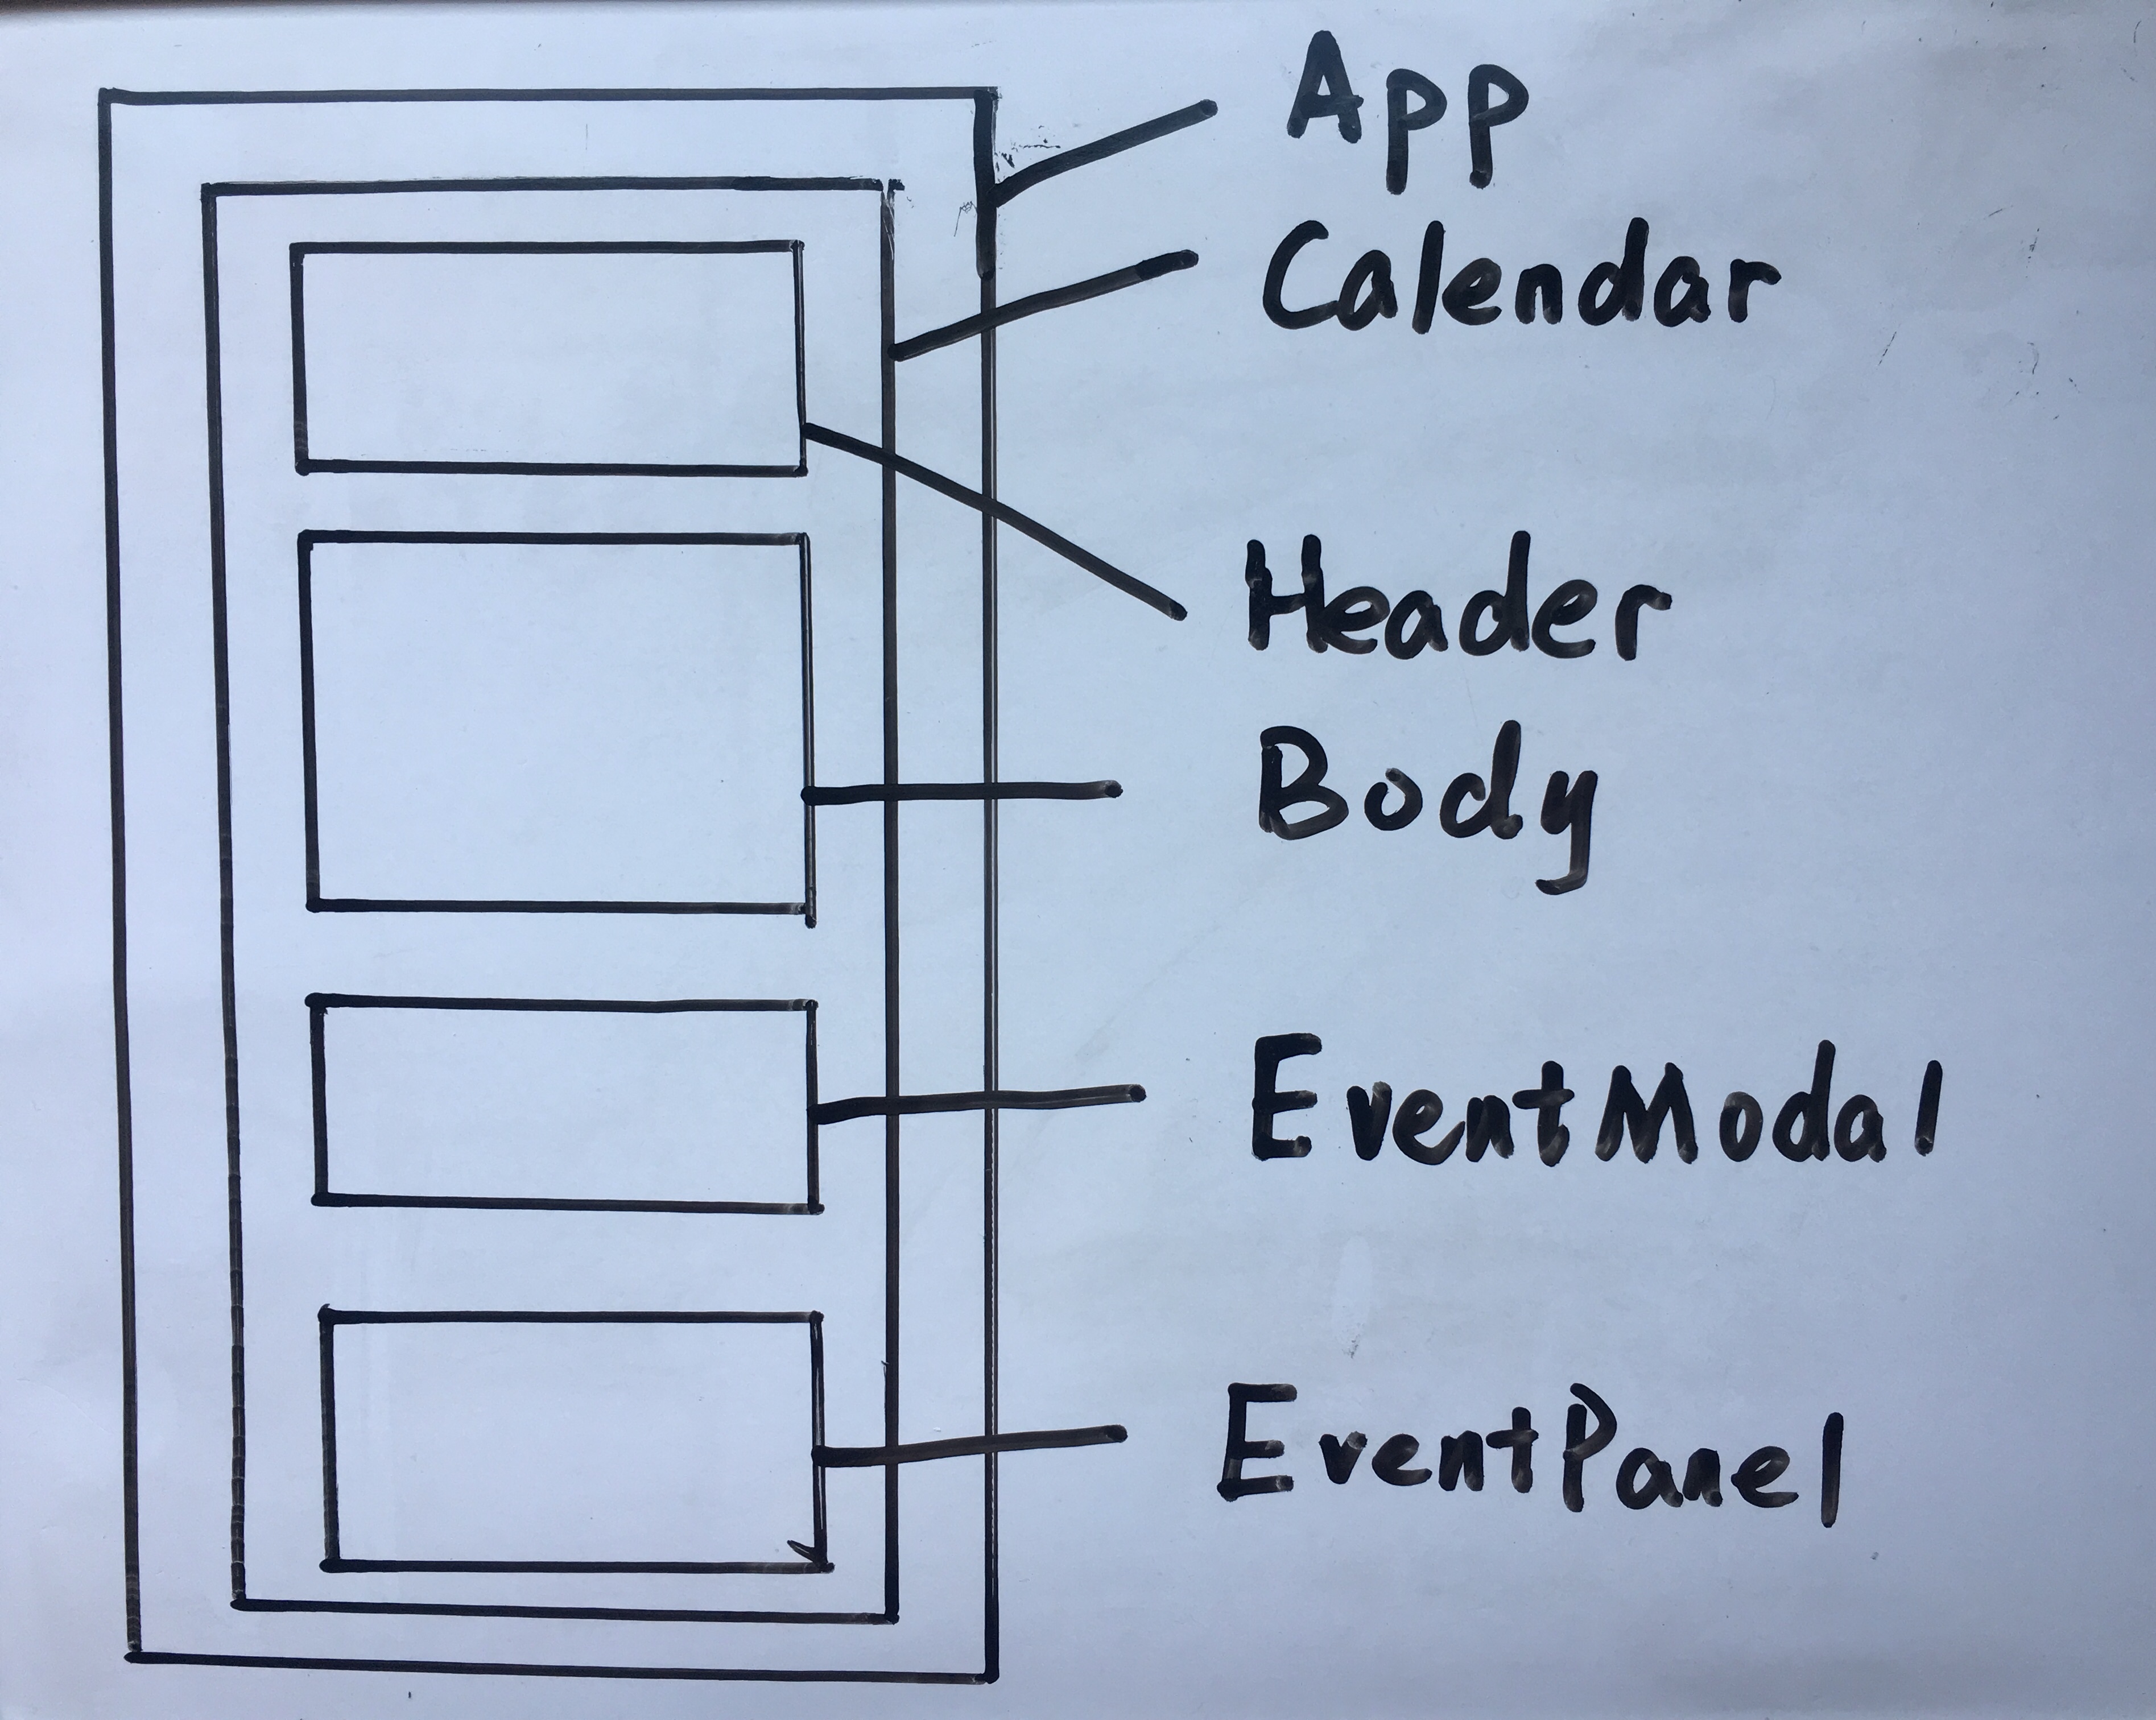 App
Calendar
Header
Body
EventModal
EventPanel